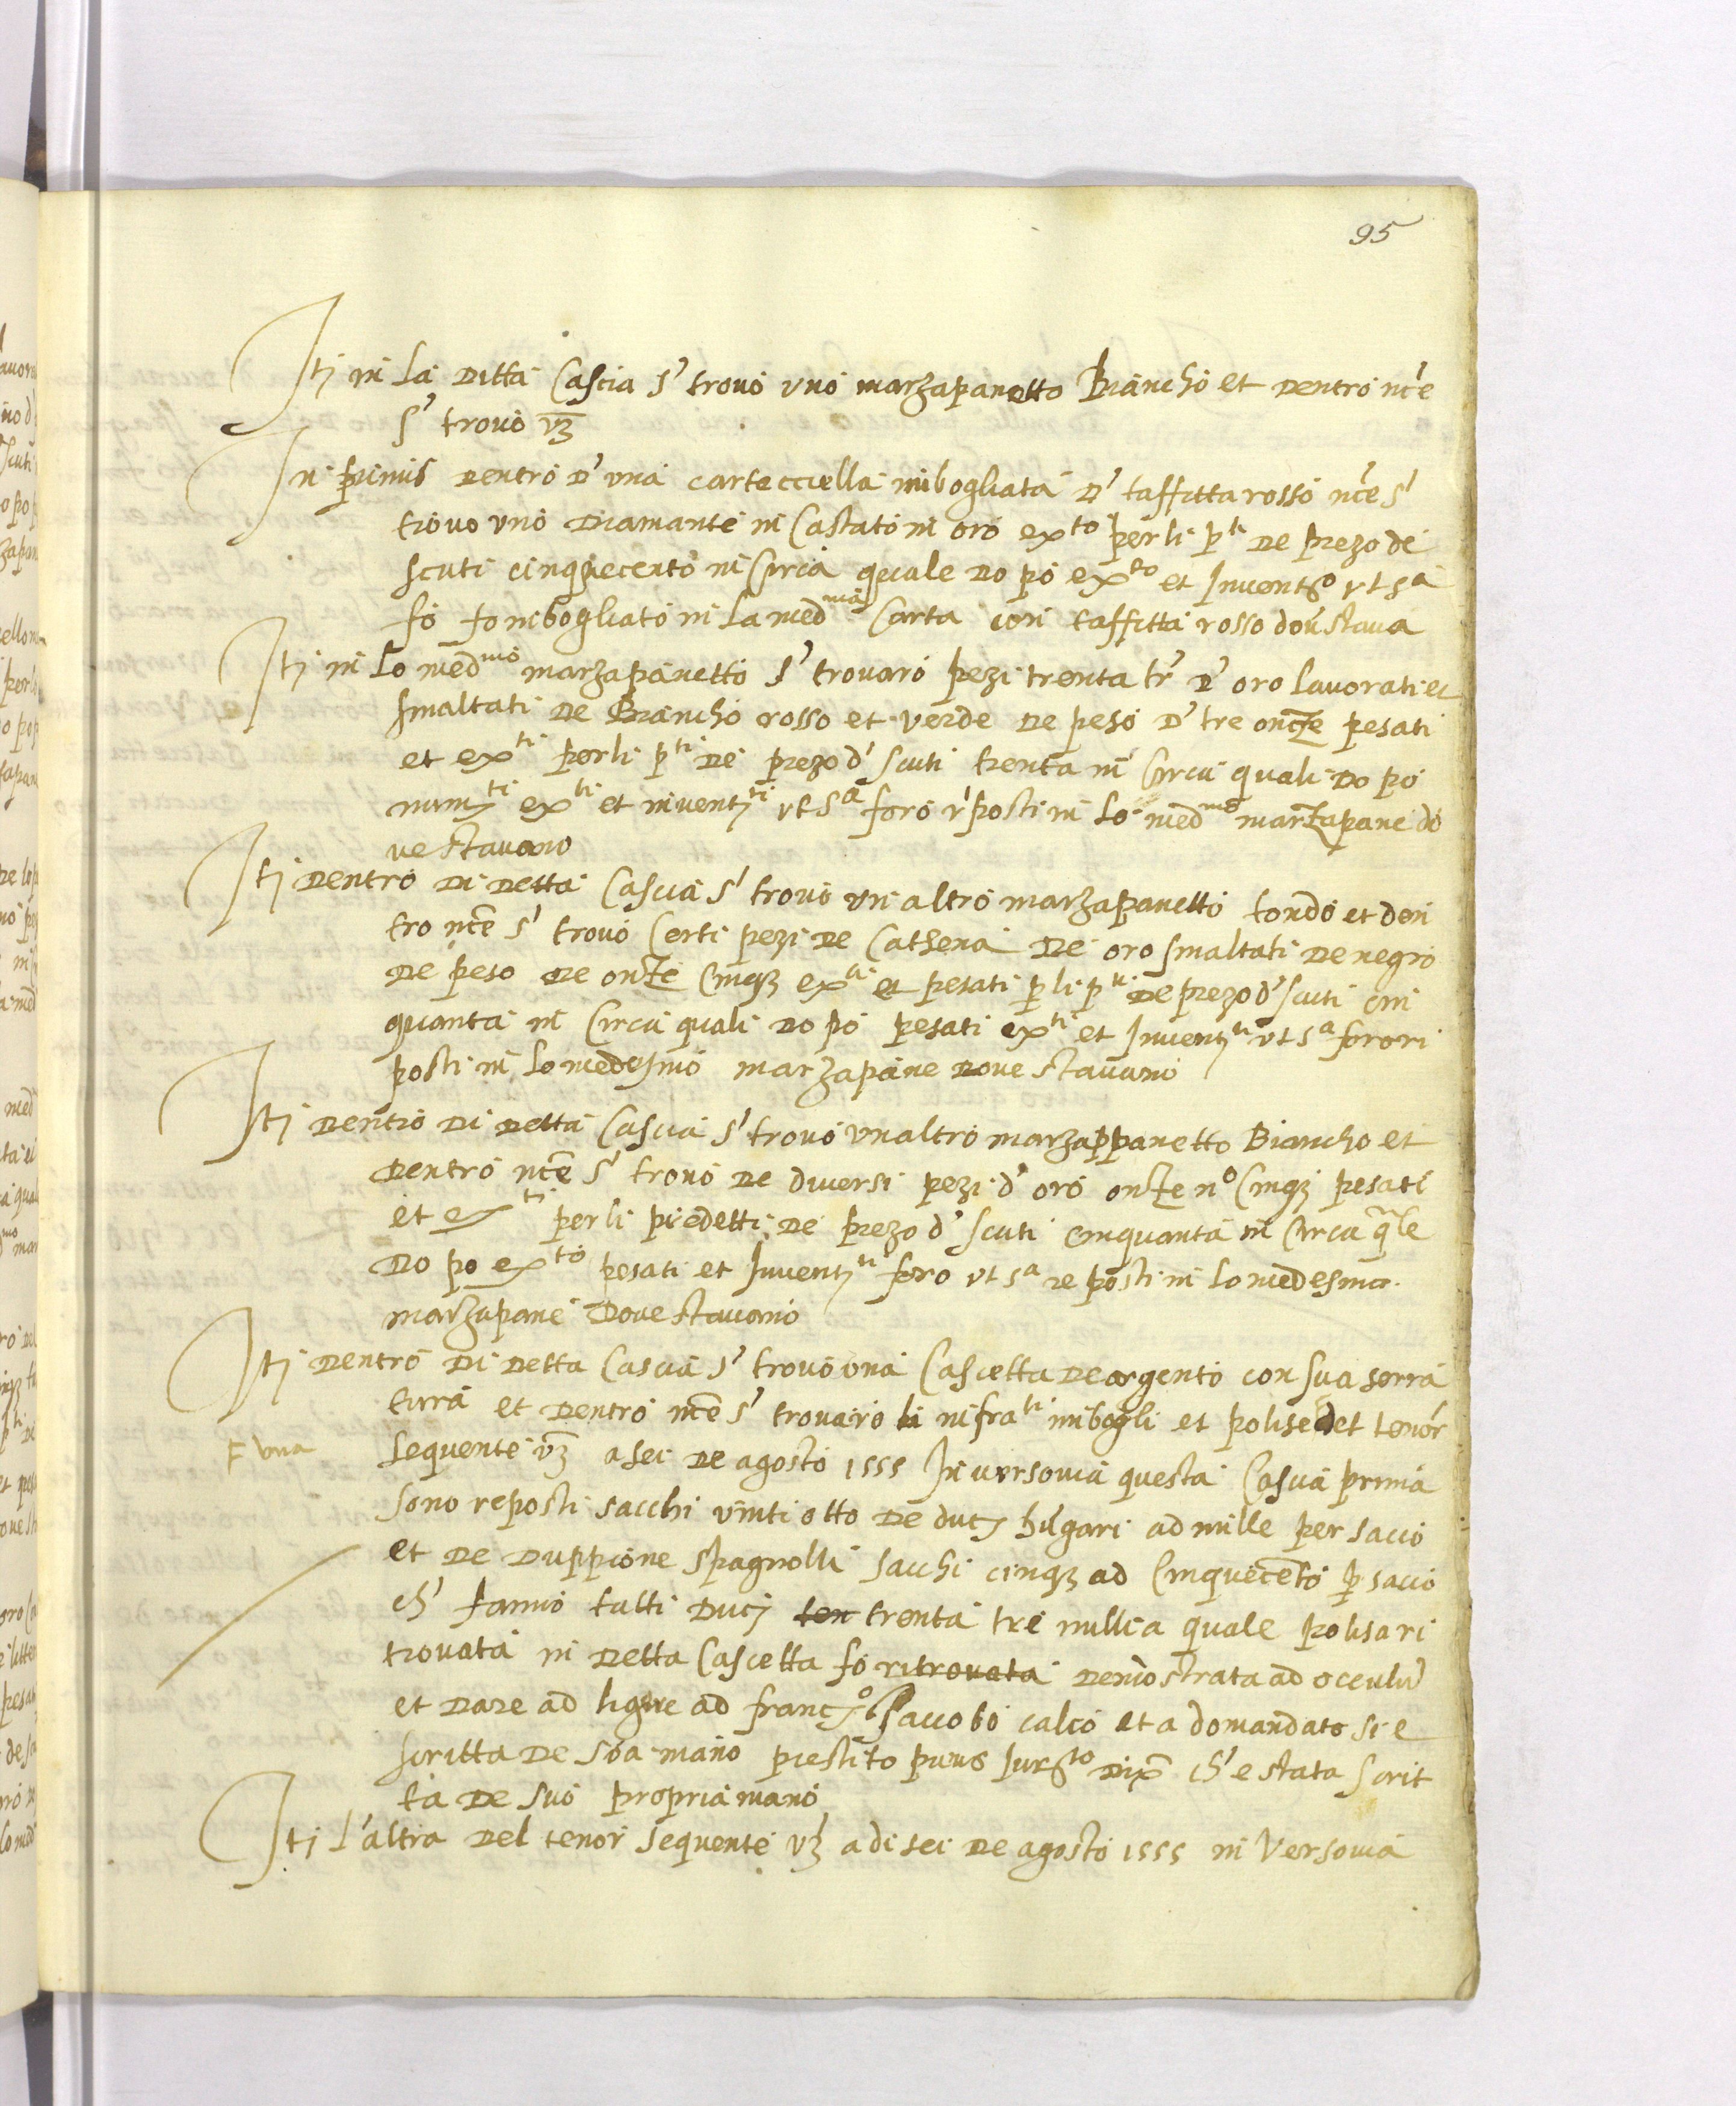 95
Itj in la ditta Cascia s' trovò uno marzapanetto Biancho et dentro nc'e
s' trovò vz
In primis dentro d' una cartecciella imbogliata d' taffitta rosso nc'e s'
trovo uno diamante in Castato in oro ex^to per li p^ti de prezo de
scuti cinquecento in Circa quale do po ex^to et Invent^o ut s^a
fo imbogliato in la med^ma Carta con taffitta rosso dov' stava
Itj in lo med^mo marzapanetto s' trovaro pezi trenta tr' d' oro lavorati et
smaltati de Biancho rosso et verde de peso d' tre oncze pesati
et ex^ti per li p^ti de prezo d' scuti trenta in Circa quali do po
num^ti ex^ti et invent^ti ut s^a foro r'posti in lo med^mo marzapane do
ve stavano
Itj dentro di detta Cascia s' trovò un altro marzapanetto tondo et den
tro nce s' trovò Certi pezi de Cathena de oro smaltati de negro
de peso de onze Cinqz ex^ti et pesati p li p^ti de prezo d' scuti cin
quanta in Circa quali do po pesati ex^ti et Invent^ti ut s^a foro ri
posti in lo medesmo marzapane dove stavano
Itj dentro di detta Cascia s' trovò un altro marzappanetto Biancho et
dentro nce s' trovò de diversi pezi d' oro onze n^o Cinqz pesati
et ex^ti per li predetti de prezo d' scuti cinquanta in Circa qle
do po ex^to pesati et Invent^ti foro ut s^a re posti in lo medesmo
marzapane dove stavano
Itj dentro di detta Cascia s' trovò una Cascetta de argento con sua serra
tura et dentro nce s' trovaro li infra^ti imbogli et polise del tenor
F una
sequente vz a sei de agosto 1555 In versovia questa Cascia prima
sono reposti sacchi vinti otto de ducj hu'gari ad mille per sacco
et de duppione spagnolli sacchi cinqz ad Cinquecento p sacco
ch' fanno tutti ducj ten trenta tre millia quale polisa ri
trovata in detta Cascetta fo ritrovata demostrata ad occulu'
et dare ad ligere ad franc^o Jacobo calco et a domandato si e
scritta de soa mano prestito prius Jur^to dix' ch' e stata scrit
ta de suo propria mano
Itj l'altra del tenor sequente vz a di sei de agosto 1555 in Versovia